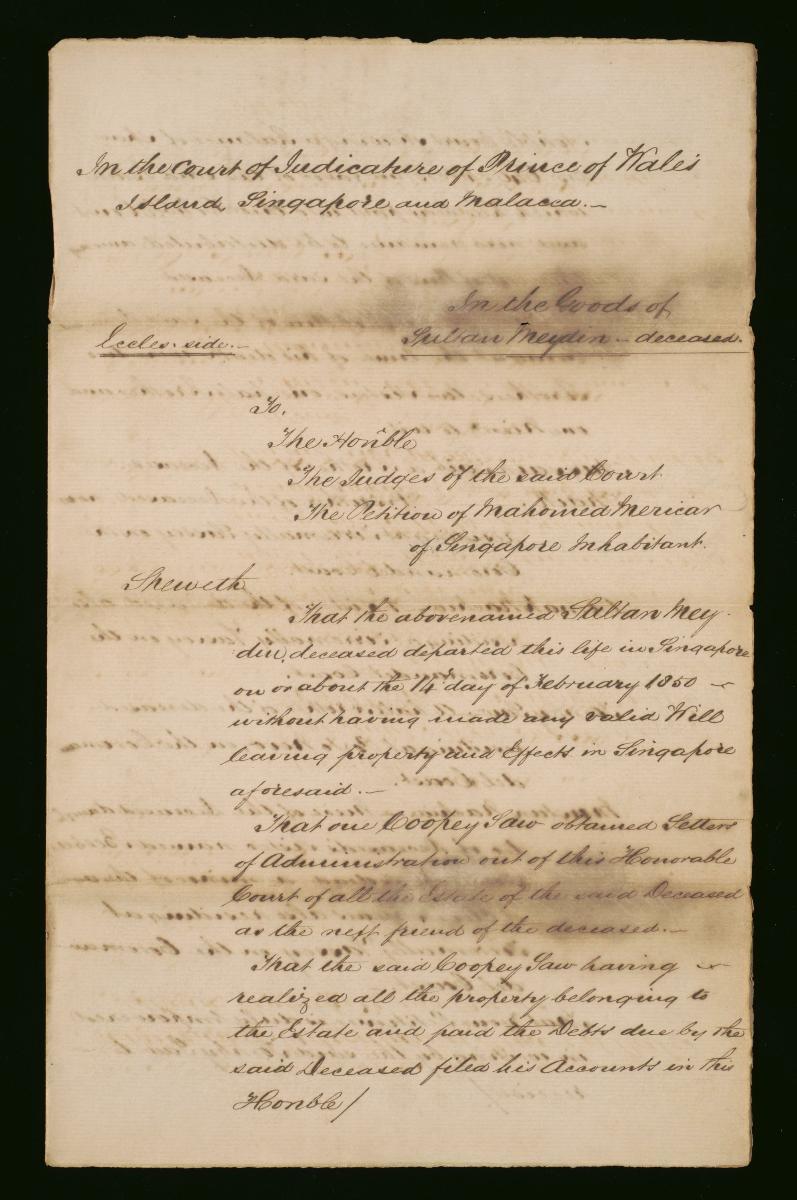 In the Court of Judicature of Prince of Wales
Island, Singapore and Malacca.—
In the Goods of
Eccles. side.— Sultan Meydin — deceased.
To,
The Hon'ble
The Judges of the said Court
The Petition of Mahomed Mericar
of Singapore Inhabitant.
Sheweth
That the abovenamed Sultan Mey-
din, deceased departed this life in Singapore
on or about the 14 day of February 1850 —
without having made any valid Will
leaving property and Effects in Singapore
aforesaid.—
That one Coopey Saw obtained Letters
of Administration out of this Honorable
Court of all the Estate of the said Deceased
as the next friend of the deceased.—
That the said Coopey Saw having —
realized all the property belonging to
the Estate and paid the Debts due by the
said Deceased filed his Accounts in this
Honble/